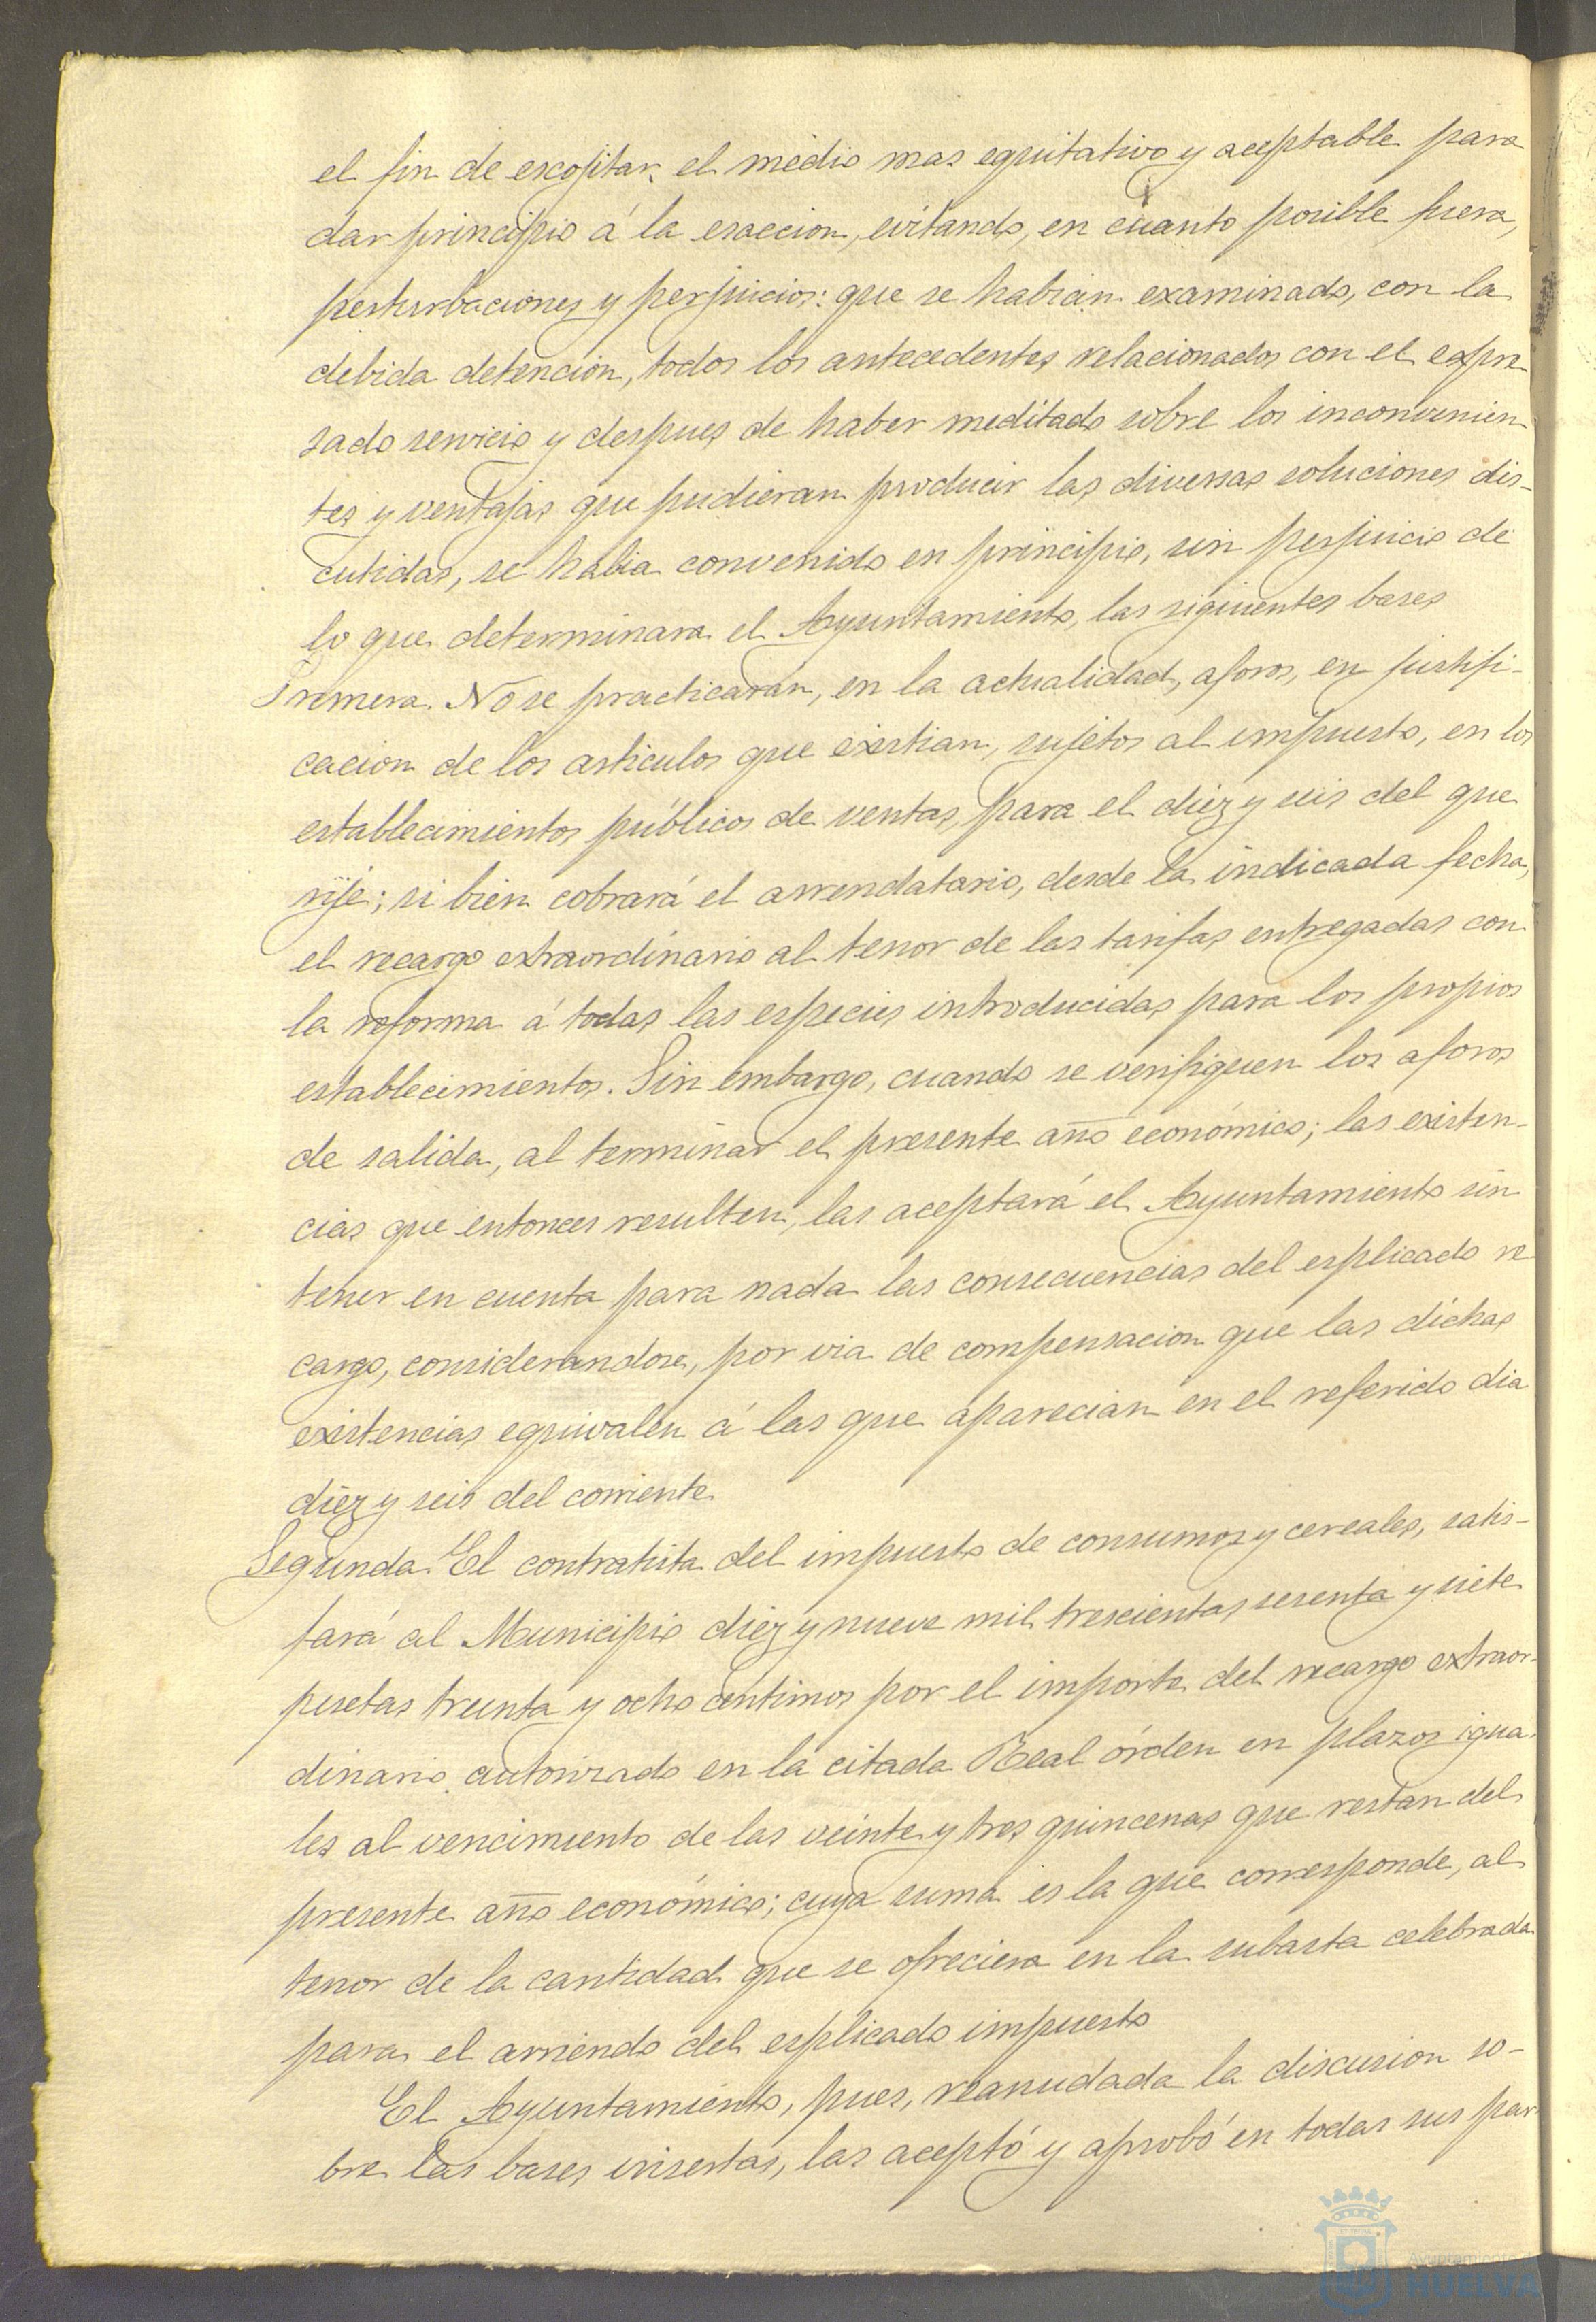 el fin de escojitar el medio mas equitativo y aceptable para
dar principio á la esaccion, evitando, en cuanto posible fuera,
perturbaciones y perjuicios: que se habian examinado, con la
debida detencion, todos los antecedentes relacionados con el espre-
sado servicio y despues de haber meditado sobre los inconvenien-
tes y ventajas que pudieran producir las diversas soluciones dis-
cutidas, se habia convenido en principio, sin perjuicio de
lo que determinara el Ayuntamiento, las siguientes bases
Primera. No se practicarán, en la actualidad, aforos, en justifi-
cacion de los articulos que existian, sujetos al impuesto, en los
establecimientos públicos de ventas, para el diez y seis del que
rije; si bien cobrará el arrendatario, desde la indicada fecha,
el recargo extraordinario al tenor de las tarifas entregadas con
la reforma á todas las especies introducidas para los propios
establecimientos. Sin embargo, cuando se verifiquen los aforos
de salida, al terminar el presente año económico; las existen-
cias que entonces resulten, las aceptará el Ayuntamiento sin
tener en cuenta para nada las consecuencias del esplicado re-
cargo, considerandose, por via de compensacion que las dichas
existencias equivalen á las que aparecian en el referido dia
diez y seis del corriente.
Segunda. El contratista del impuesto de consumos y cereales, satis-
fará al Municipio diez y nueve mil trescientas sesenta y siete
pesetas treinta y ocho centimos por el importe del recargo extraor-
dinario autorizado en la citada Real órden en plazos igua-
les al vencimiento de las veinte y tres quincenas que restan del
presente año económico; cuya suma es la que corresponde, al
tenor de la cantidad que se ofreciera en la subasta celebrada
para el arriendo del esplicado impuesto
El Ayuntamiento, pues, reanudada la discusion so-
bre las bases insertas, las aceptó y aprobó en todas sus par-
Ayuntamiento
HUELVA